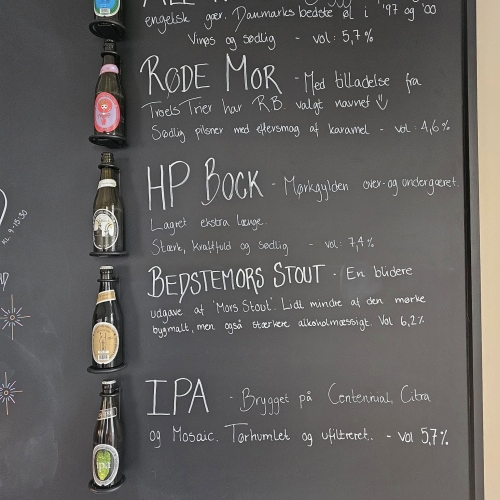 engelsk gær. Danmarks bedste øl i '97 og '00
Vinøs og sødlig - vol: 5,7%
RØDE MOR - Med tilladelse fra
Troels Trier har R.B. valgt navnet
Sødlig pilsner med eftersmag af karamel - vol: 4,6%
HP BOCK - Mørkgylden over- og undergæret.
Lagret ekstra længe.
Stærk, kraftfuld og sødlig - vol: 7,4%
BEDSTEMORS STOUT - En blidere
udgave af 'Mors Stout'. Lidt mindre af den mørke
bygmalt, men også stærkere alkoholmæssigt. Vol 6,2%
IPA - Brygget på Centennial, Citra
og Mosaic. Tørhumlet og ufiltreret. - vol 5,7%
kl. 9-15.30